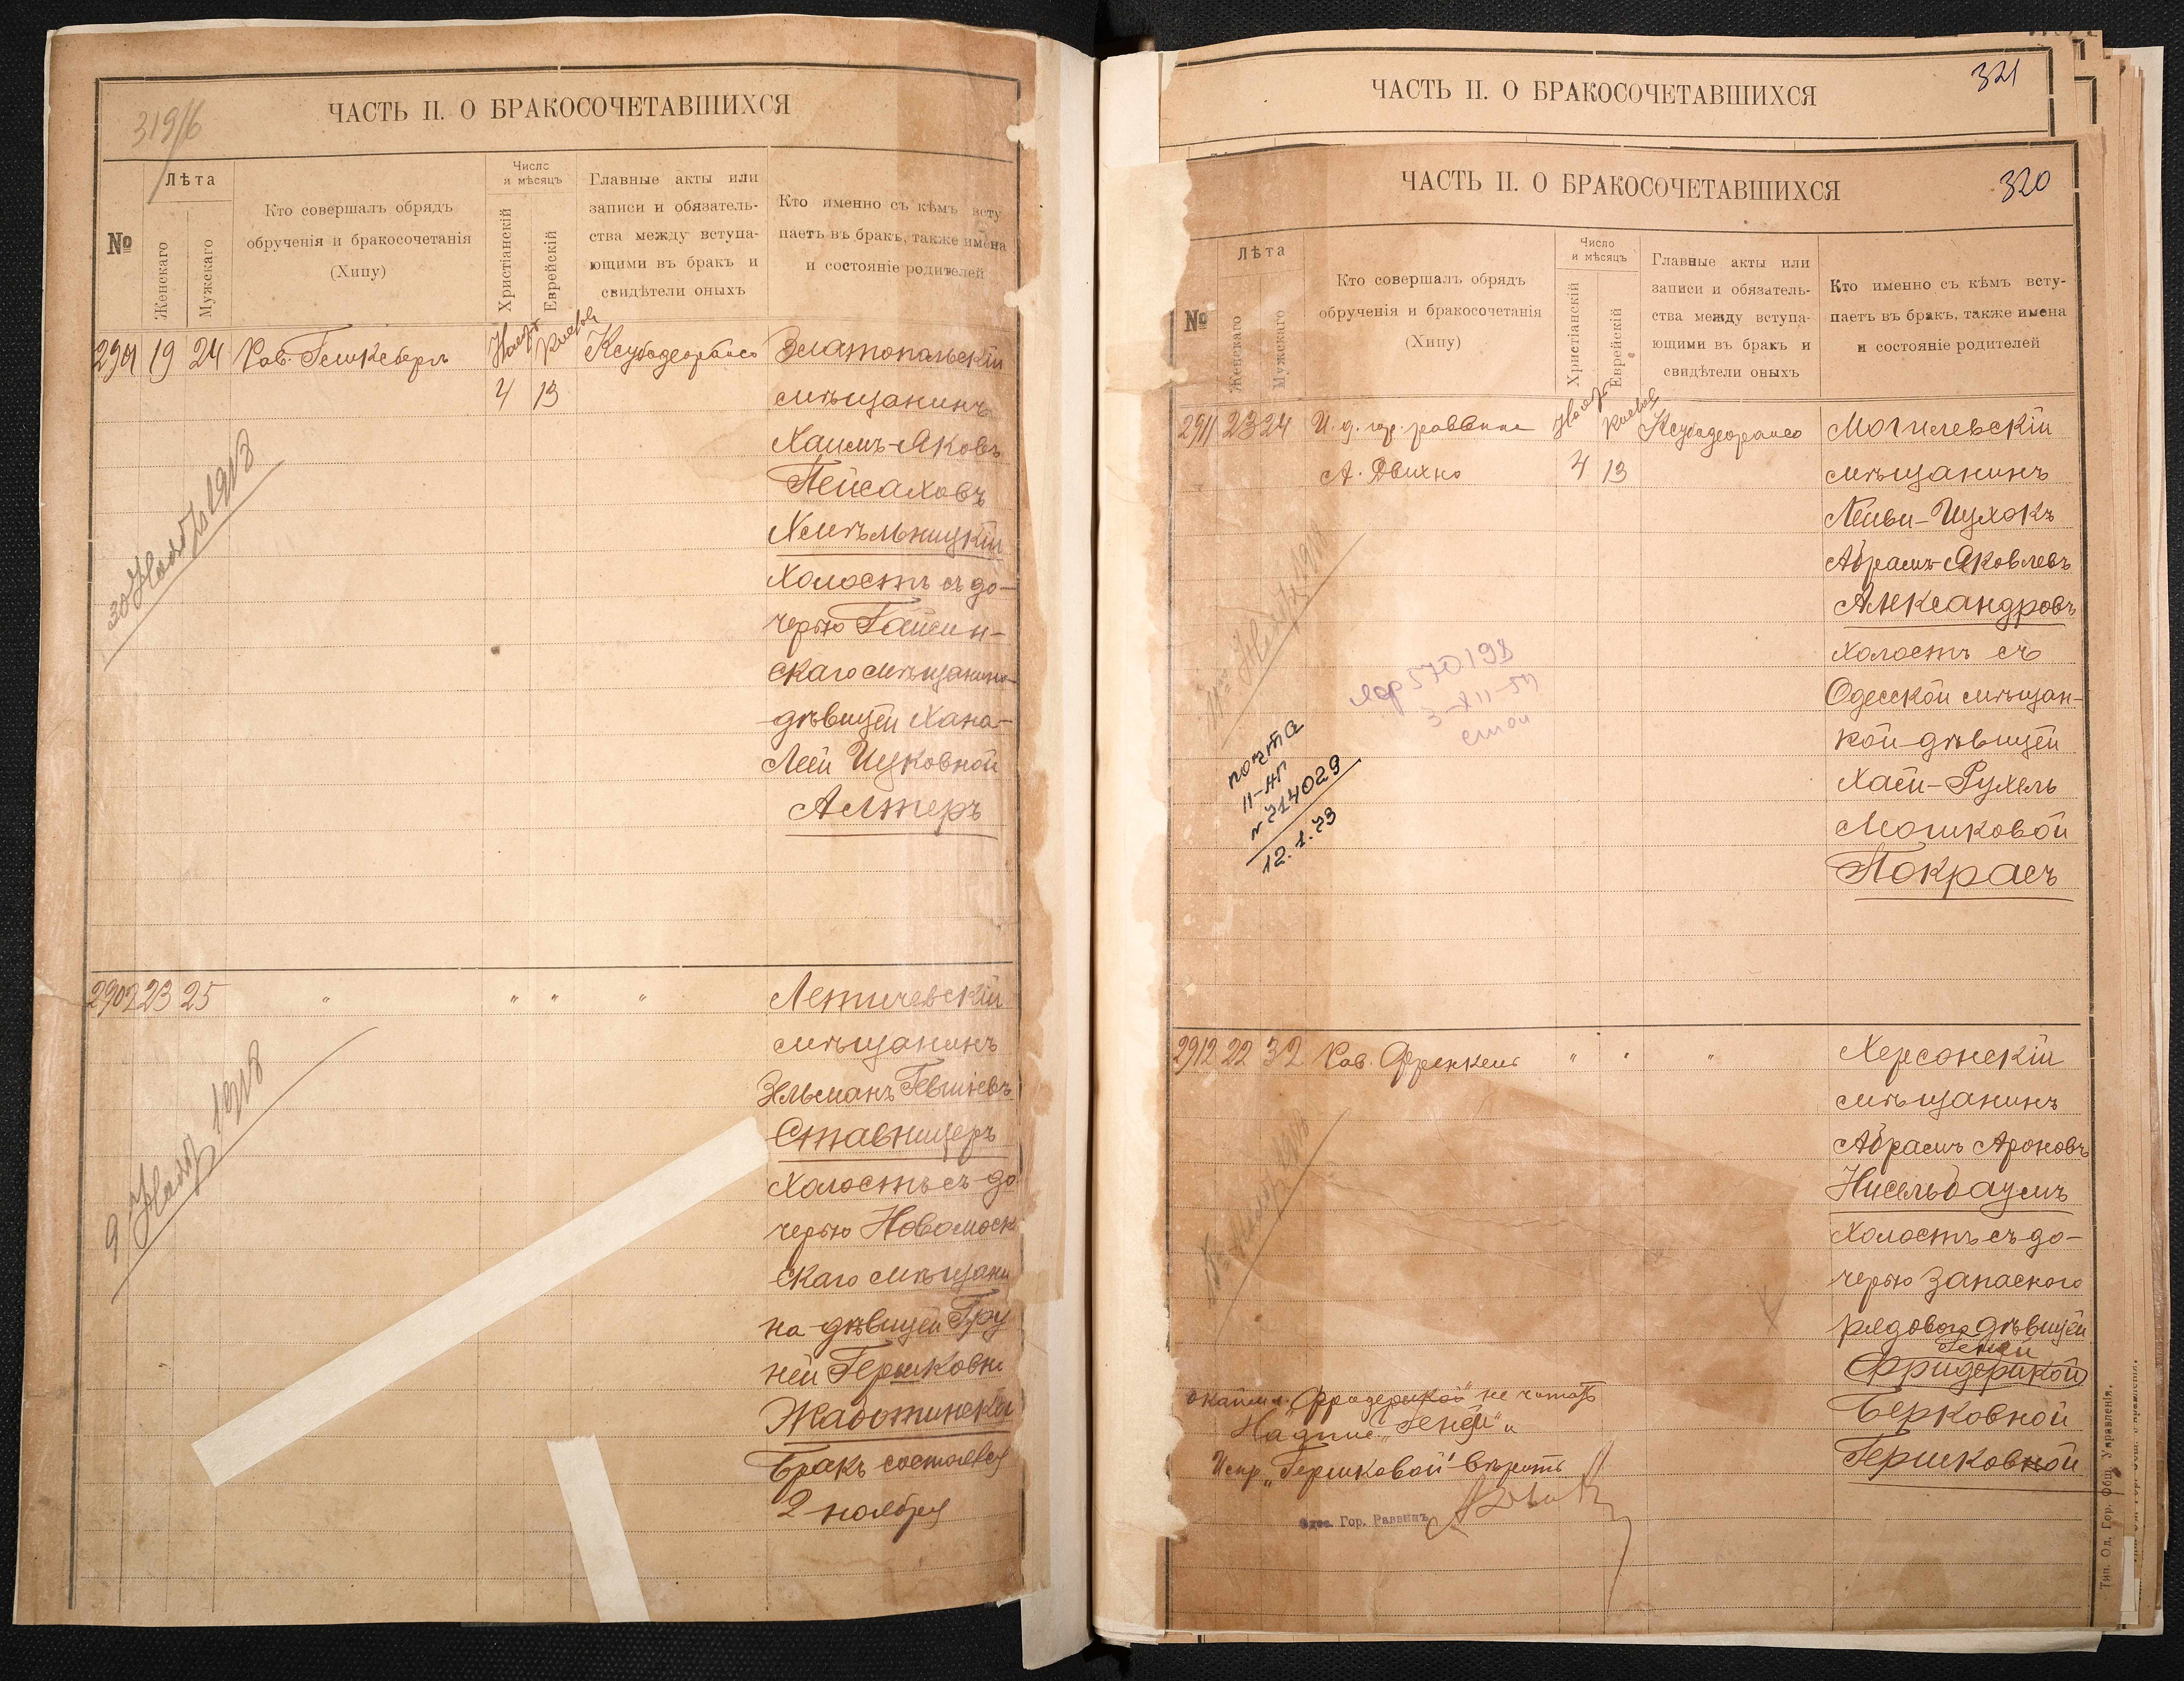 319/16
ЧАСТЬ II. О БРАКОСОЧЕТАВШИХСЯ
№
Лѣта
Женскаго
Мужскаго
Кто совершалъ обрядъ
обрученія и бракосочетанія
(Хипу)
Число
и мѣсяцъ
Христіанскій
Еврейскій
Главные акты или
записи и обязатель-
ства между вступа-
ющими въ бракъ и
свидѣтели оныхъ
Кто именно съ кѣмъ всту
паетъ въ бракъ, также имена
и состояніе родителей
2901 19 24
Рав.
4 13
Златопольскій
мѣщанинъ
Хаимъ-Яковъ
Пейсаховъ
Хмѣльницкій
холостъ съ до-
черью Гайсин-
скаго мѣщанина
дѣвицей Хана-
Леей Ицковной
Алтеръ
30 1918
2902 23 25 " " " "
Летичевскій
мѣщанинъ
Зельманъ Гевшіевъ
Ставницеръ
холостъ съ до
черью Новомоск
скаго мѣщани
на дѣвицей Гру
ней Гершковн
Жаботинской
Бракъ состоялся
2 ноября
9 1918
321
ЧАСТЬ II. О БРАКОСОЧЕТАВШИХСЯ
320
ЧАСТЬ II. О БРАКОСОЧЕТАВШИХСЯ
№
Лѣта
Женскаго
Мужскаго
Кто совершалъ обрядъ
обрученія и бракосочетанія
(Хипу)
Число
и мѣсяцъ
Христіанскій
Еврейскій
Главные акты или
записи и обязатель-
ства между вступа-
ющими въ бракъ и
свидѣтели оныхъ
Кто именно съ кѣмъ всту-
паетъ въ бракъ, также имена
и состояніе родителей
2911 23 24 И. д. гор. раввина
А. Двихно
4 13
Могилевскій
мѣщанинъ
Лейви-Ицхокъ
Абрамъ-Яковлевъ
Александровъ
холостъ съ
Одесской мѣщан-
кой дѣвицей
Хаей-Рухель
Мошковой
Покрасъ
570198
3-XII-54
почта
II-АП
№ 714029
12.1.73
2912 22 32 Рав. Френкель " " "
Херсонскій
мѣщанинъ
Абрамъ Ароновъ
Нисельбаумъ
холостъ съ до-
черью запаснаго
рядового дѣвицей
Геней
Фридерикой
Берковной
Гершковной
"Фридерикой" не читать
Надпис. "Геней" и
Испр. "Гершковой" вѣрить
Одес. Гор. Раввинъ
Тип. Од. Гор. Общ. Управленія.